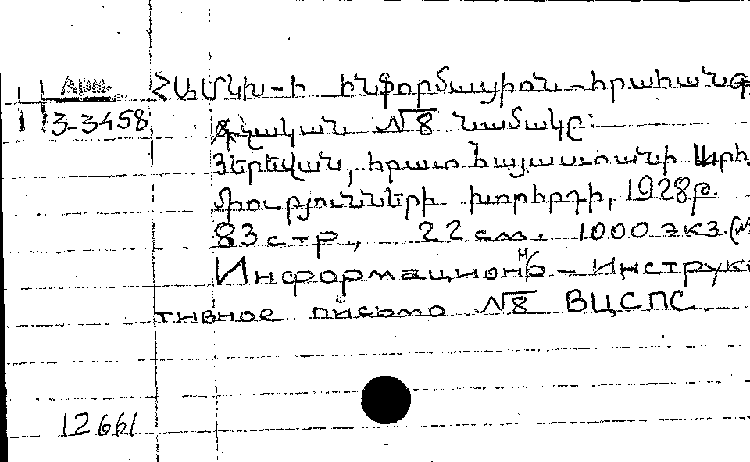 Արտ.
3-3458
ՀԱՄԿԽ-ի ինֆորմացիոն-հրահանգ
չական №8 նամակը:
Յերեվան, հրատ Հայաստանի Արհ
միությունների խորհրդի, 1928թ.
83 стр., 22 см. 1000 экз. (
Информационно – инструк
тивное письмо №8 ВЦСПС.
12661